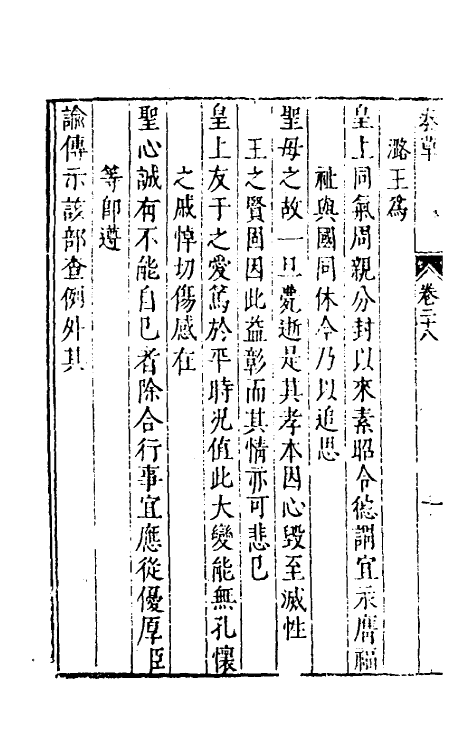 奏草
卷二十八
一
潞王爲
皇上同氣周親分封以來素昭令德謂宜永膺福
祉與國同休今乃以追思
聖母之故一旦薨逝是其孝本因心毀至滅性
王之賢固因此益彰而其情亦可悲已
皇上友于之愛篤於平時況值此大變能無孔懷
之戚悼切傷感在
聖心誠有不能自已者除合行事宜應從優厚臣
等卽遵
諭傳示該部查例外其